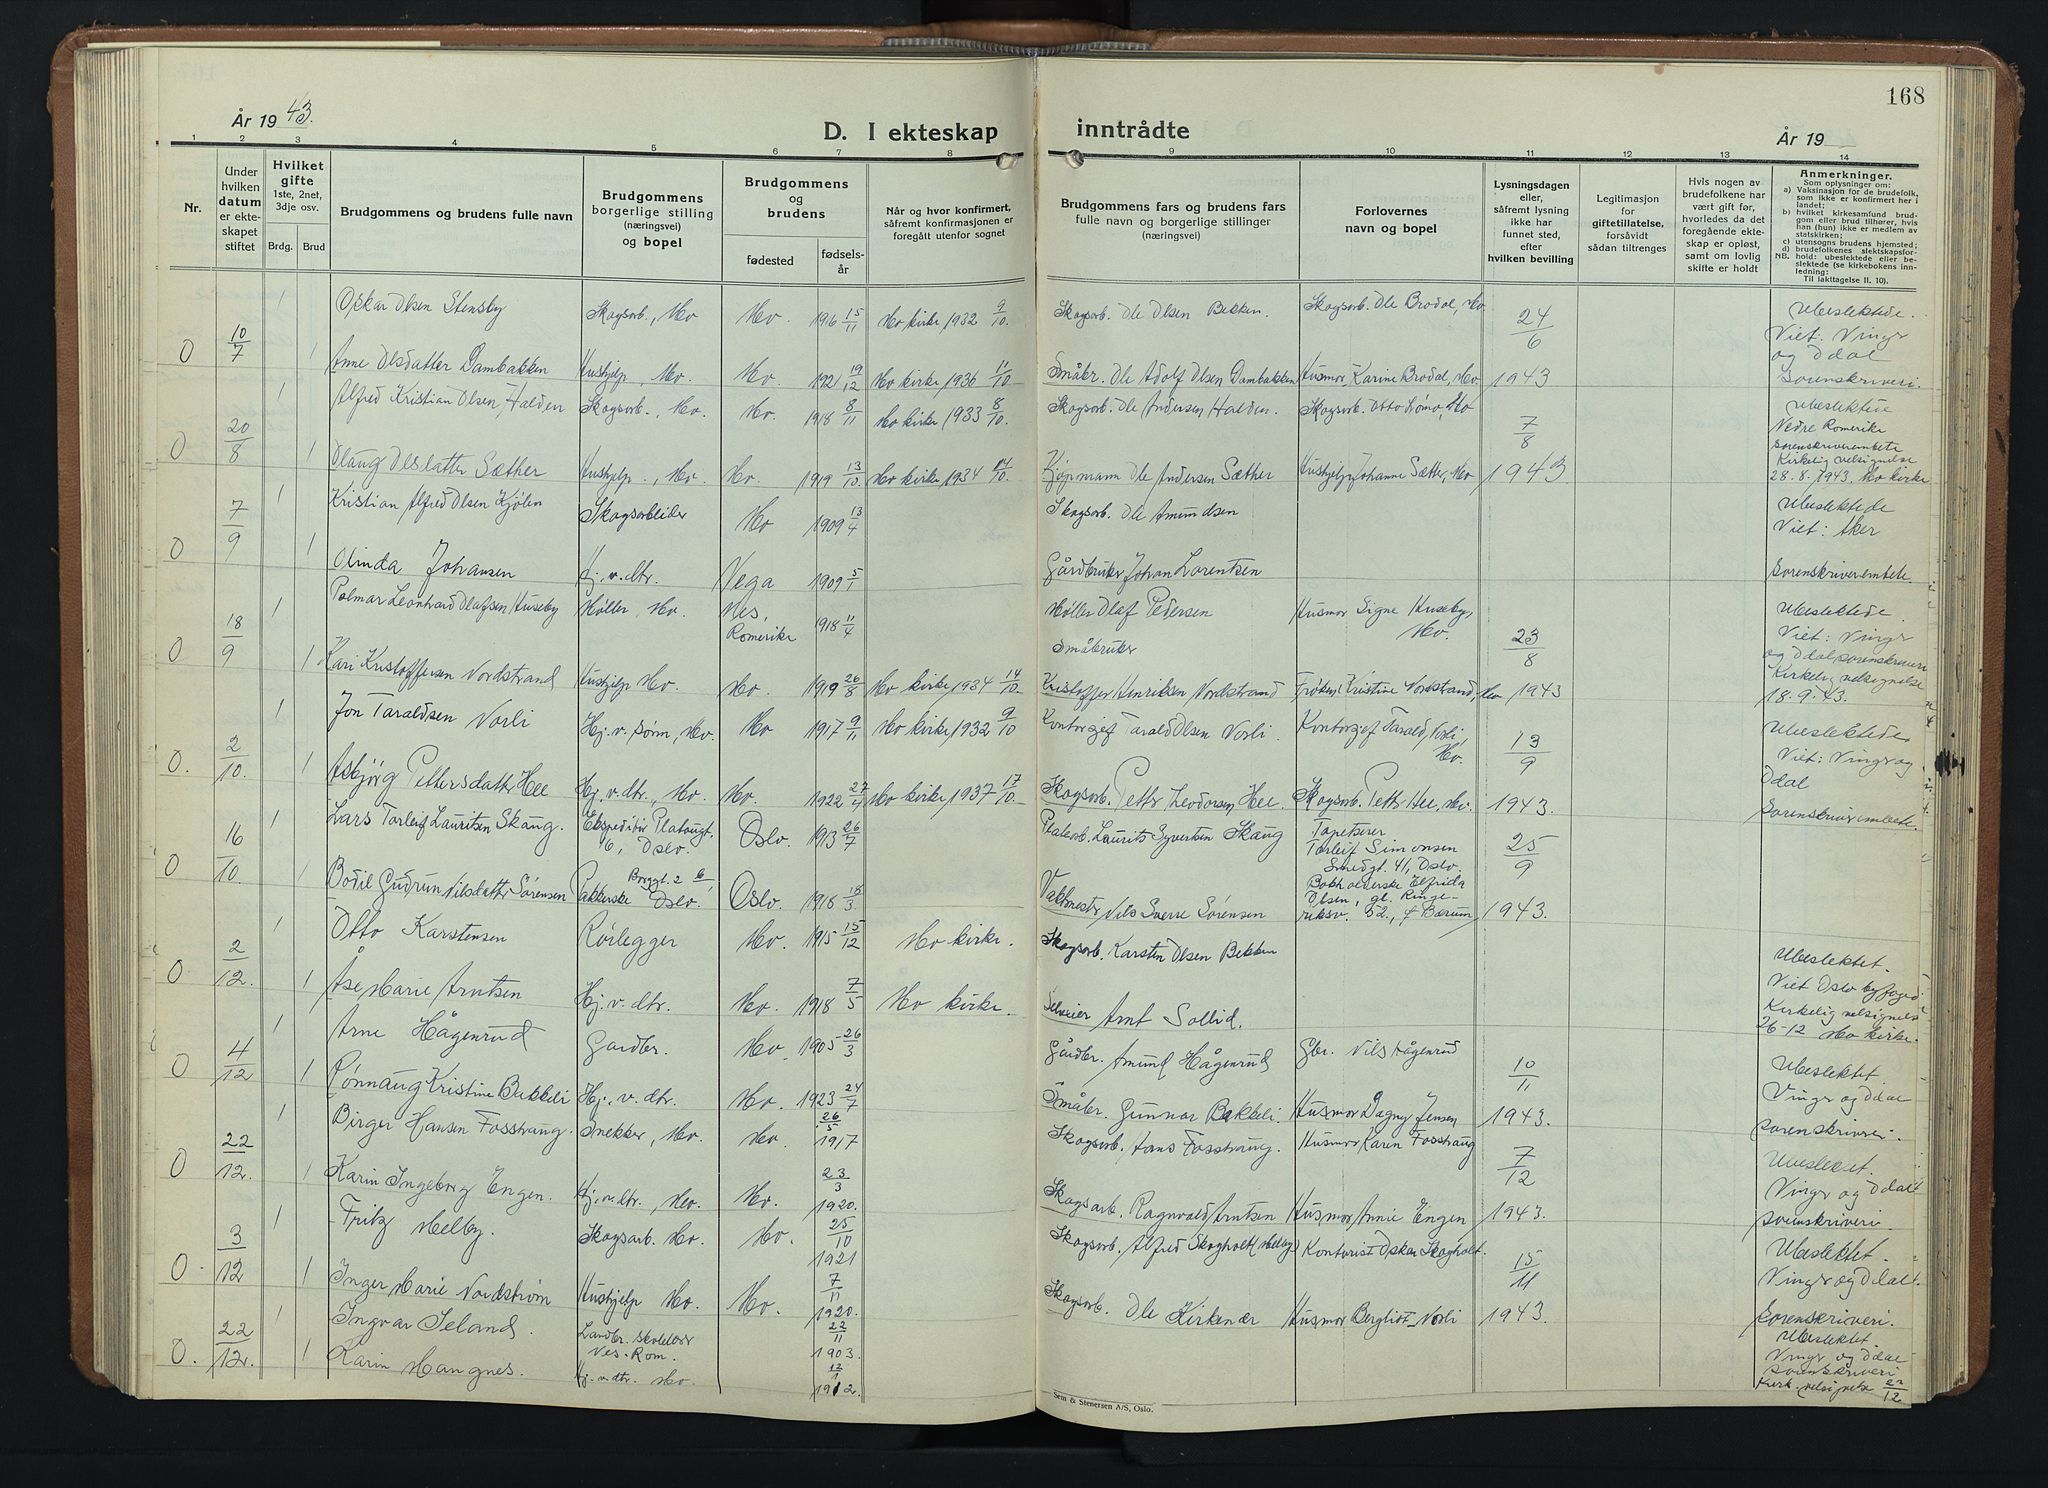 År 1943.
D. I ekteskap inntrådte
168
År 19
1 2 3 4 5 6 7 8 9 10 11 12 13 14
Nr.
Under hvilken datum er ekteskapet stiftet
Hvilket gifte 1ste, 2net, 3dje osv.
Brdg. Brud
Brudgommens og brudens fulle navn
Brudgommens borgerlige stilling (næringsvei) og bopel
Brudgommens og brudens
fødested
fødselsår
Når og hvor konfirmert, såfremt konfirmasjonen er foregått utenfor sognet
Brudgommens fars og brudens fars fulle navn og borgerlige stillinger (næringsvei)
Forlovernes navn og bopel
Lysningsdagen eller, såfremt lysning ikke har funnet sted, efter hvilken bevilling
Legitimasjon for giftetillatelse, forsåvidt sådan tiltrenges
Hvis nogen av brudefolkene har vært gift før, hvorledes da det foregående ekteskap er opløst, samt om lovlig skifte er holdt
Anmerkninger.
Som oplysninger om:
a) Vaksinasjon for de brudefolk, som ikke er konfirmert her i landet;
b) hvilket kirkesamfund brudgom eller brud tilhører, hvis han (hun) ikke er medlem av statskirken;
c) utensogns brudens hjemsted;
d) brudefolkenes slektskapsforhold: ubeslektede eller beslektede (se kirkebokens innledning:
NB. Til Iakttagelse II. 10).
0 10/7 1 Oskar Olsen Stensby Skogsarb., Mo Mo. 1916 15/11 Mo kirke 1932 9/10. Skogsarb. Ole Olsen Bekken. Skogsarb. Ole Brodal, Mo 24/6 Ubeslektede. Viet: Vinger og Odal
1 Anne Olsdatter Dambakken Hushjelp, Mo. Mo. 1921 19/12 Mo kirke 1936 11/10 Småbr. Ole Adolf Olsen Dambakken Husmor Karine Brodal, Mo 1943 Sorenskriveri.
0 20/8 1 Alfred Kristian Olsen Halden Skogsarb., Mo. Mo. 1918 8/11 Mo kirke 1933 8/10. Skogsarb. Ole Andersen Halden. Skogsarb. Otto Romo, Mo 7/8 Ubeslektede Nedre Romerike sorenskriverembete
1 Olaug Olsdatter Sæther Hushjelp, Mo. Mo. 1919 13/10. Mo kirke 1934 14/10. Kjøpmann Ole Andersen Sæther Hushjelp Johanne Sæther, Mo 1943 Kirkelig velsignelse 28.8.1943. Mo kirke
0 7/9 1 Kristian Alfred Olsen Kjølen Skogsarbeider Mo 1909 13/4 Skogsarb. Ole Amundsen Ubeslektede Viet: Aker
1 Olinda Johansen Hj. v. dtr. Vega 1909 5/1 Gårdbruker Johan Lorentsen Sorenskriverembete
0 18/9 1 Palmar Leonhard Olafsen Huseby Møller, Mo Nes, Romerike 1918 11/4 Møller Olaf Pedersen Husmor Signe Huseby, Mo. 23/8 Ubeslektede Viet: Vinger og Odal sorenskriveri
1 Kari Kristoffersen Nordstrand Hushjelp Mo. Mo. 1919 26/8 Mo kirke 1934 14/10. Småbruker Kristoffer Henriksen Nordstrand Frøken Kristine Nordstrand, Mo 1943 Kirkelig velsignelse 18.9.43.
0. 2/10. 1 Jon Taraldsen Norli Hj. v. sønn, Mo. Mo 1917 9/11 Mo kirke 1932 9/10 Kontorsjef Tarald Olsen Norli. Kontorsjef Tarald Norli, Mo. 13/9 Ubeslektede Viet: Vinger og
1 Asbjørg Pettersdatter Hee Hj. v. dtr., Mo. Mo. 1922 27/4 Mo kirke 1937 17/10. Skogsarb. Petter Teodorsen Hee. Skogsarb. Petter Hee, Mo. 1943. Odal Sorenskriverembete.
0 16/10. 1 Lars Torleif Lauritsen Skaug. Ekspeditør Platougt. 6, Oslo. Oslo. 1913 26/7 Platearb. Laurits Syvertsen Skaug Tapetserer Torleif Simonsen Smedgt. 41, Oslo. 25/9
Bodil Gudrun Nilsdatter Sørensen Pakkerske Borggt. 2 b, Oslo. Oslo. 1918 18/3. Vaktmester Nils Sverre Sørensen Bokholderske Elfrida Olsen, gl. Ringeriksv. 52., Bærum 1943.
0 2/12. 1 Otto Karstensen Rørlegger Mo. 1915 15/12 Mo kirke. Skogsarb. Karsten Olsen Bekken Ubeslektet.
1 Åse Marie Arntsen Hj. v. dtr. Mo. 1918 7/5 Mo kirke. Selveier Arnt Sollid. Viet Oslo byfoged. Kirkelig velsignelse 26-12 Mo kirke.
0 4/12 1 Arne Hågenrud Gardbr. Mo. 1905 26/3 Gårdbr. Amund Hågenrud Gbr. Nils Hågenrud 10/11 Ubeslektet
1 Rønnaug Kristine Bakkeli Hj. v. dtr. Mo. 1923 24/7 Småbr. Gunnar Bakkeli. Husmor Dagny Jensen 1943. Vinger og Odal sorenskriveri.
0 22/12. 1 Birger Hansen Fosstraug. Snekker, Mo. Mo. 26/5 1917 Skogsarb. Hans Fosstraug. Husmor Karen Fosstraug 7/12 Ubeslektet.
1 Karin Ingeborg Engen. Hj. v. dtr., Mo. Mo. 23/3 1920. Skogsarb. Ragnvald Arntsen Husmor Annie Engen 1943. Vinger og Odal sorenskriveri.
0. 3/12 1 Fritz Melby. Skogsarb. Mo. Mo. 25/10 1921 Skogsarb. Alfred Skogholt (Melby) Kontorist Oskar Skogholt. 15/11 Ubeslektet.
1 Inger Marie Nordstrøm Hushjelp Mo. Mo. 7/11 1920. Skogsarb. Ole Kirkenær Husmor Bergliot Norli 1943. Vinger og Odal Sorenskriveri.
0. 22/12. 1 Ingvar Seland. Landbr. skolelærer Nes. Rom. 22/11 1903. Ubeslektet Vinger og Odal
1 Karin Mangnes. Hj. v. dtr. Mo. 12/1 1912. sorenskriveri Kirk. velsignelse 22/12
Sem & Stenersen A/S, Oslo.